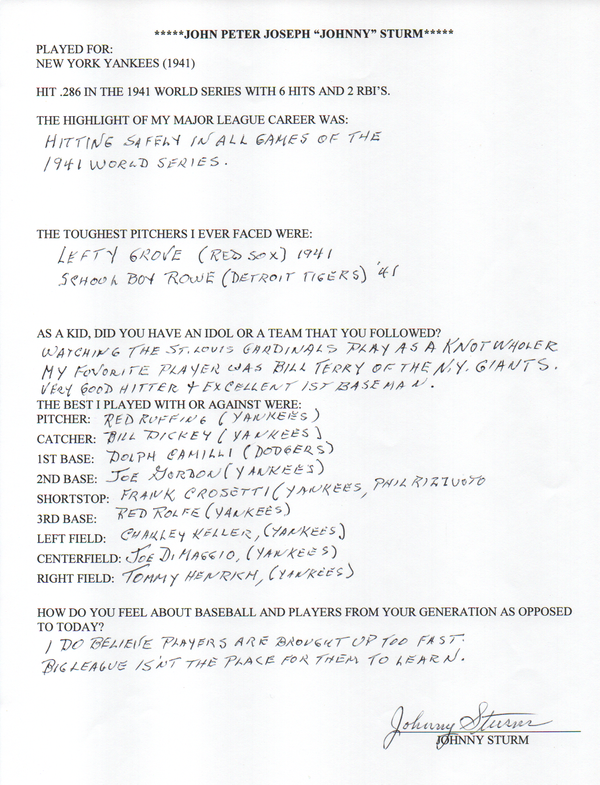 *****JOHN PETER JOSEPH “JOHNNY” STURM*****
PLAYED FOR:
NEW YORK YANKEES (1941)
HIT .286 IN THE 1941 WORLD SERIES WITH 6 HITS AND 2 RBI'S.
THE HIGHLIGHT OF MY MAJOR LEAGUE CAREER WAS:
HITTING SAFELY IN ALL GAMES OF THE
1941 WORLD SERIES.
THE TOUGHEST PITCHERS I EVER FACED WERE:
LEFTY GROVE (RED SOX) 1941
SCHOOL BOY ROWE (DETROIT TIGERS) '41
AS A KID, DID YOU HAVE AN IDOL OR A TEAM THAT YOU FOLLOWED?
WATCHING THE ST. LOUIS CARDINALS PLAY AS A KNOTWHOLER
MY FOVORITE PLAYER WAS BILL TERRY OF THE N.Y. GIANTS.
VERY GOOD HITTER & EXCELLENT 1ST BASEMAN.
THE BEST I PLAYED WITH OR AGAINST WERE:
PITCHER: RED RUFFING (YANKEES)
CATCHER: BILL DICKEY (YANKEES)
1ST BASE: DOLPH CAMILLI (DODGERS)
2ND BASE: JOE GORDON (YANKEES)
SHORTSTOP: FRANK CROSETTI (YANKEES, PHIL RIZZUOTO
3RD BASE: RED ROLFE (YANKEES)
LEFT FIELD: CHARLEY KELLER, (YANKEES)
CENTERFIELD: JOE DIMAGGIO, (YANKEES)
RIGHT FIELD: TOMMY HENRICH, (YANKEES)
HOW DO YOU FEEL ABOUT BASEBALL AND PLAYERS FROM YOUR GENERATION AS OPPOSED
TO TODAY?
I DO BELIEVE PLAYERS ARE BROUGHT UP TOO FAST.
BIG LEAGUE ISN'T THE PLACE FOR THEM TO LEARN.
Johnny Sturm
JOHNNY STURM